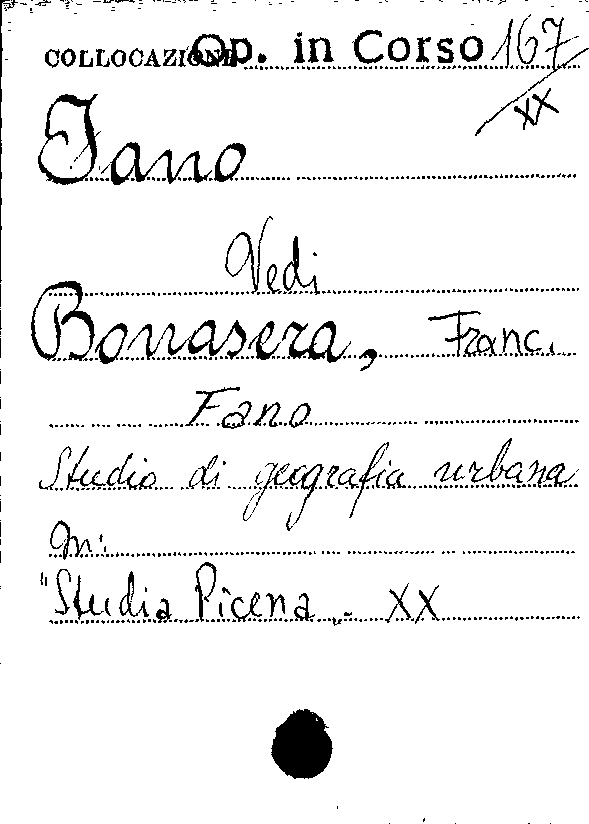 COLLOCAZIONE Op. in Corso 167/XX
Fano
Vedi
Bonasera, Franc.
Fano
Studio di geografia urbana
In:
"Studia Picena„ - XX